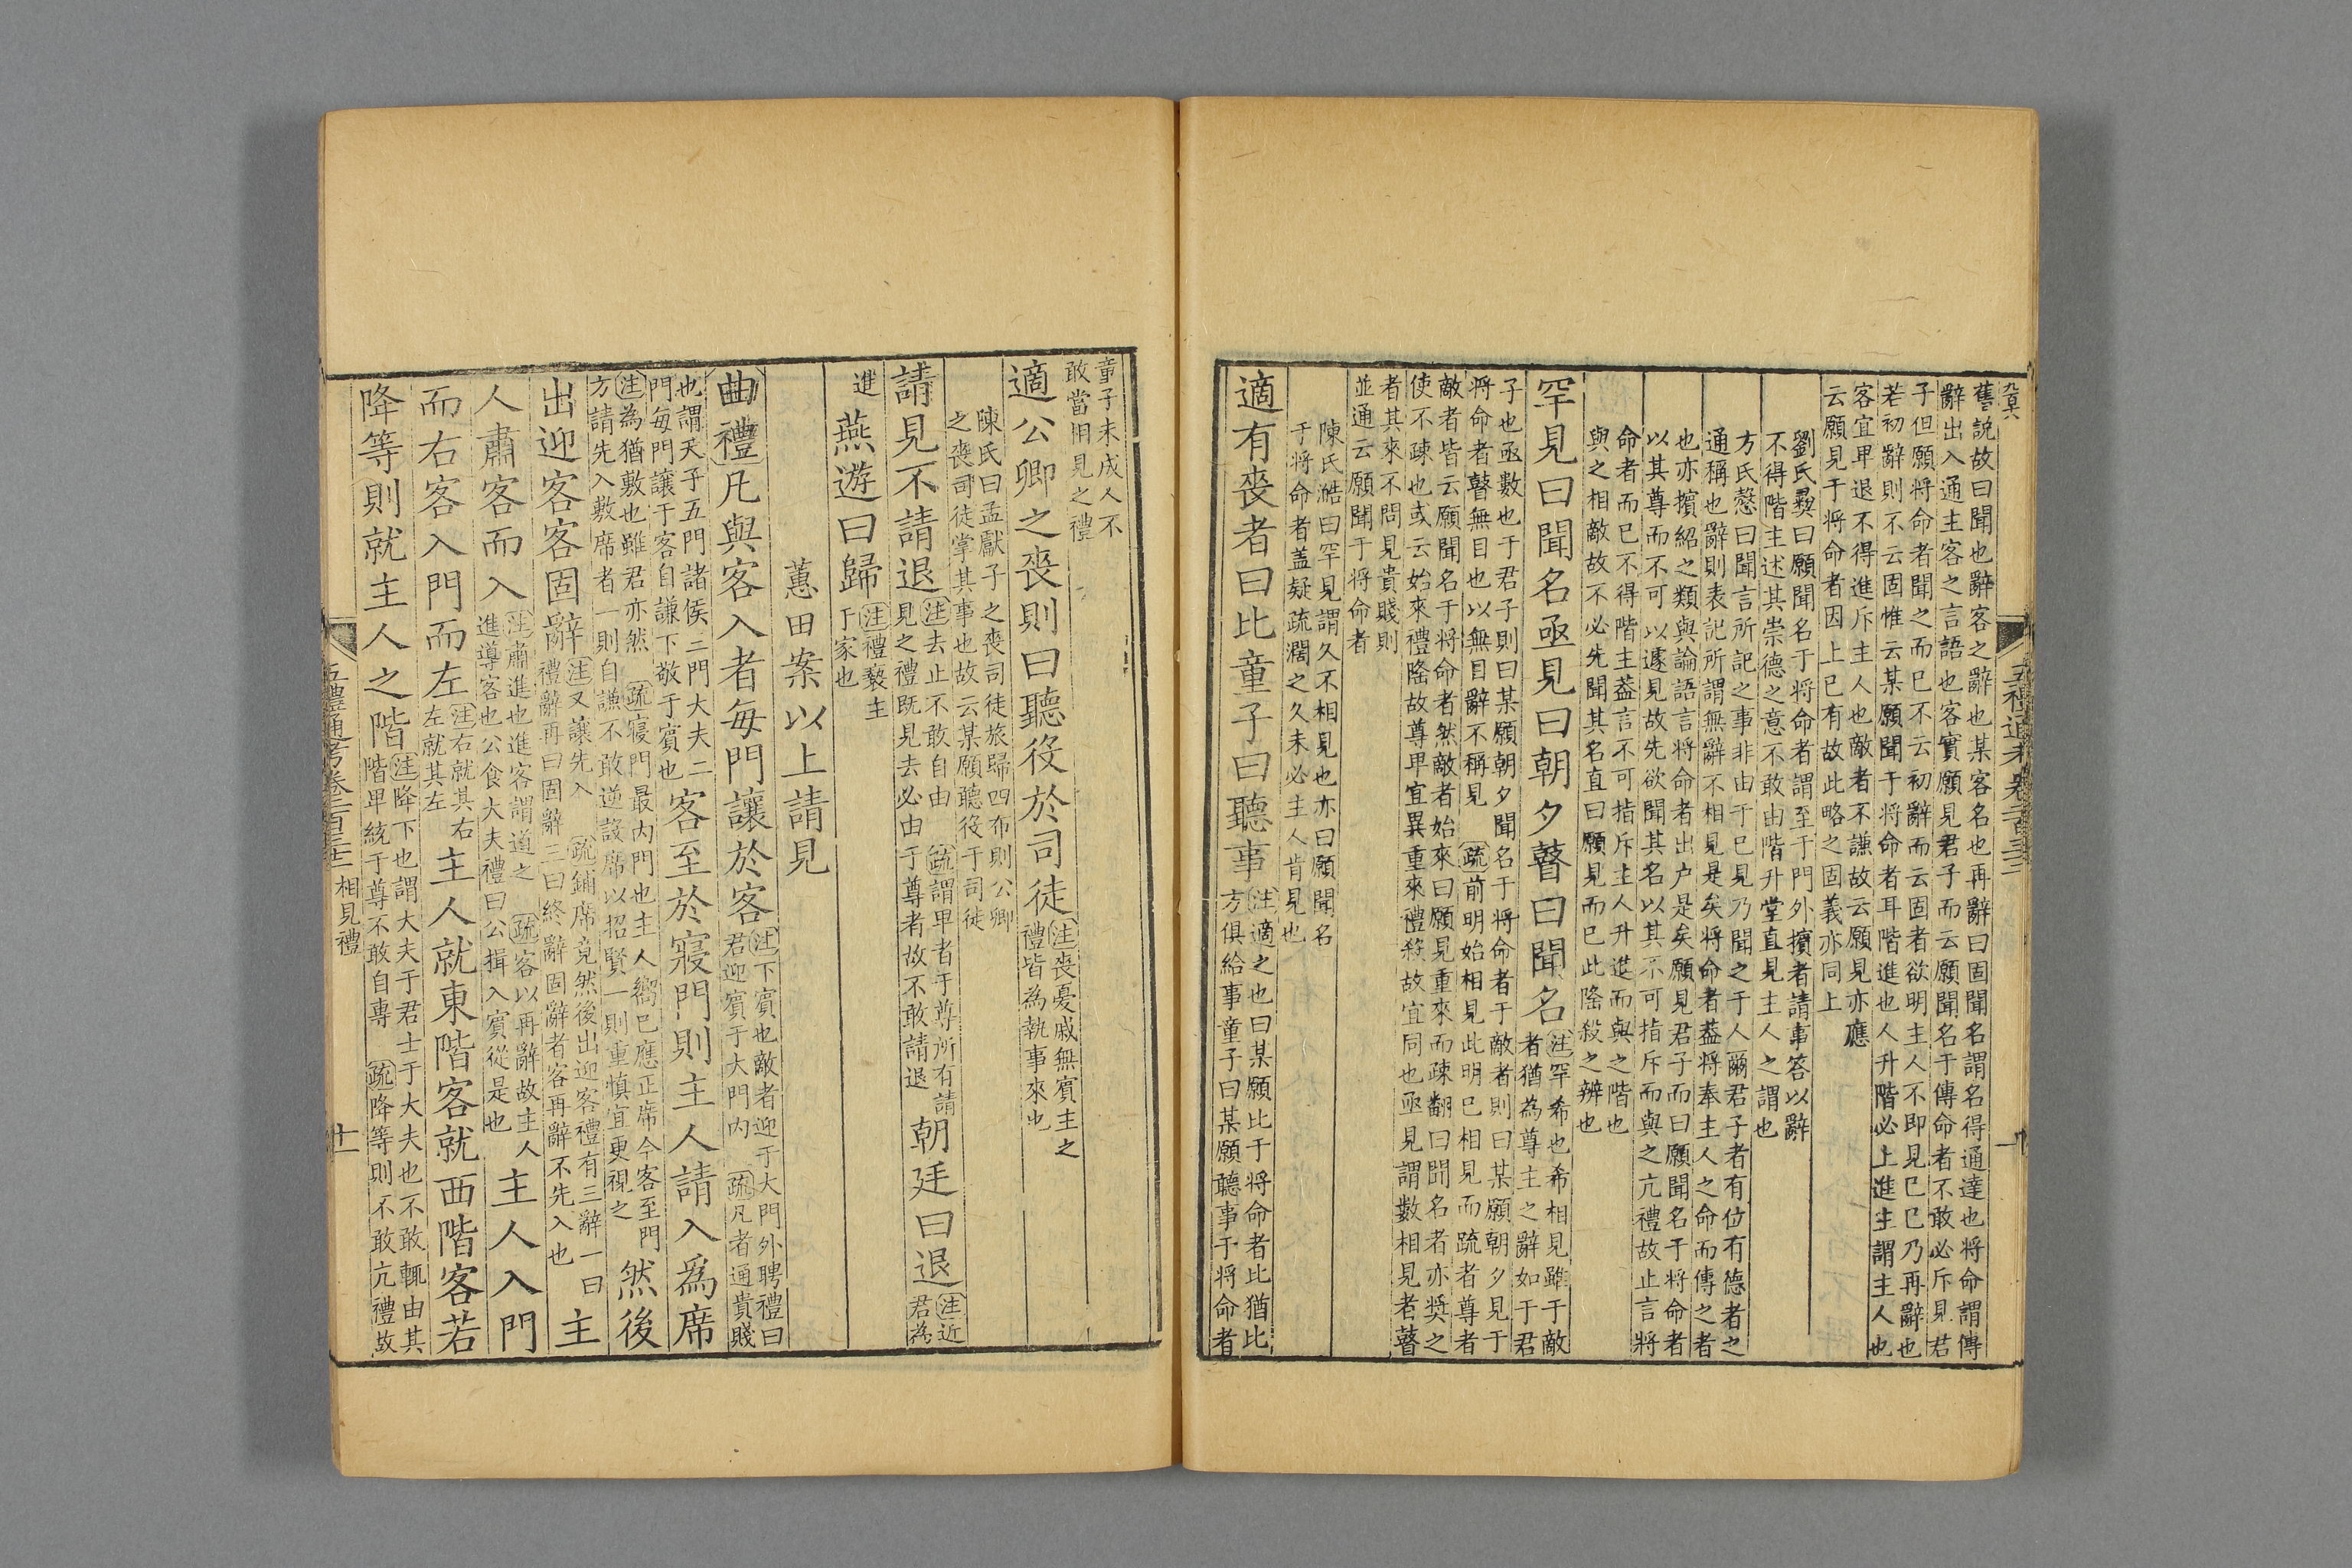 舊説故曰聞也辭客之辭也某客名也再辭曰固聞名謂名得通達也將命謂傳
辭出入通主客之言語也客實願見君子而云願聞名于傳命者不敢必斥見君
子但願將命者聞之而已不云初辭而云固者欲明主人不即見已已乃再辭也
若初辭則不云固惟云某願聞于將命者耳階進也人升階必上進主謂主人也
客宜卑退不得進斥主人也敵者不謙故云願見亦應
云願見于將命者因上已有故此略之固義亦同上
劉氏彞曰願聞名于將命者謂至于門外擯者請事答以辭
不得階主述其崇德之意不敢由階升堂直見主人之謂也
方氏慤曰聞言所記之事非由于已見乃聞之于人爾君子者有位有德者之
通稱也辭則表記所謂無辭不相見是矣將命者葢將奉主人之命而傳之者
也亦擯紹之類與論語言將命者出户是矣願見君子而曰願聞名于將命者
以其尊而不可以遽見故先欲聞其名以其不可指斥而與之亢禮故止言將
命者而已不得階主葢言不可指斥主人升進而與之階也
與之相敵故不必先聞其名直曰願見而已此隆殺之辨也
罕見曰聞名亟見曰朝夕瞽曰聞名
注罕希也希相見雖于敵
者猶為尊主之辭如于君
子也亟數也于君子則曰某願朝夕聞名于將命者于敵者則曰某願朝夕見于
將命者瞽無目也以無目辭不稱見 疏前明始相見此明已相見而疏者尊者
敵者皆云願聞名于將命者然敵者始來曰願見重來而疎翻曰聞名者亦奬之
使不疎也或云始來禮隆故尊卑宜異重來禮殺故宜同也亟見謂數相見者瞽
者其來不問見貴賤則
並通云願聞于將命者
陳氏澔曰罕見謂久不相見也亦曰願聞名
于將命者葢疑疏濶之久未必主人肯見也
適有喪者曰比童子曰聽事
注適之也曰某願比于將命者比猶比
方俱給事童子曰某願聽事于將命者
五禮通考卷二百三十二
童子未成人不
敢當相見之禮
適公卿之喪則曰聽役於司徒
注喪憂戚無賓主之
禮皆為執事來也
陳氏曰孟獻子之喪司徒旅歸四布則公卿
之喪司徒掌其事也故云某願聽役于司徒
請見不請退
注去止不敢自由 疏謂卑者于尊所有請
見之禮既見去必由于尊者故不敢請退
朝廷曰退
注近
君為
進
燕遊曰歸
注禮褻主
于家也
蕙田案以上請見
曲禮凡與客入者每門讓於客
注下賓也敵者迎于大門外聘禮曰
君迎賓于大門内 疏凡者通貴賤
也謂天子五門諸侯三門大夫二
門每門讓于客自謙下敬于賓也
客至於寢門則主人請入爲席
注為猶敷也雖君亦然 疏寢門最内門也主人嚮已應正席今客至門
方請先入敷席者一則自謙不敢逆設席以招賢一則重慎宜更視之
然後
出迎客客固辭
注又讓先入 疏鋪席竟然後出迎客禮有三辭一曰
禮辭再曰固辭三曰終辭固辭者客再辭不先入也
主
人肅客而入
注肅進也進客謂道之 疏客以再辭故主人
進導客也公食大夫禮曰公揖入賓從是也
主人入門
而右客入門而左
注右就其右
左就其左
主人就東階客就西階客若
降等則就主人之階
注降下也謂大夫于君士于大夫也不敢輒由其
階卑統于尊不敢自專 疏降等則不敢亢禮故
五禮通考卷二百三十二 相見禮
十一